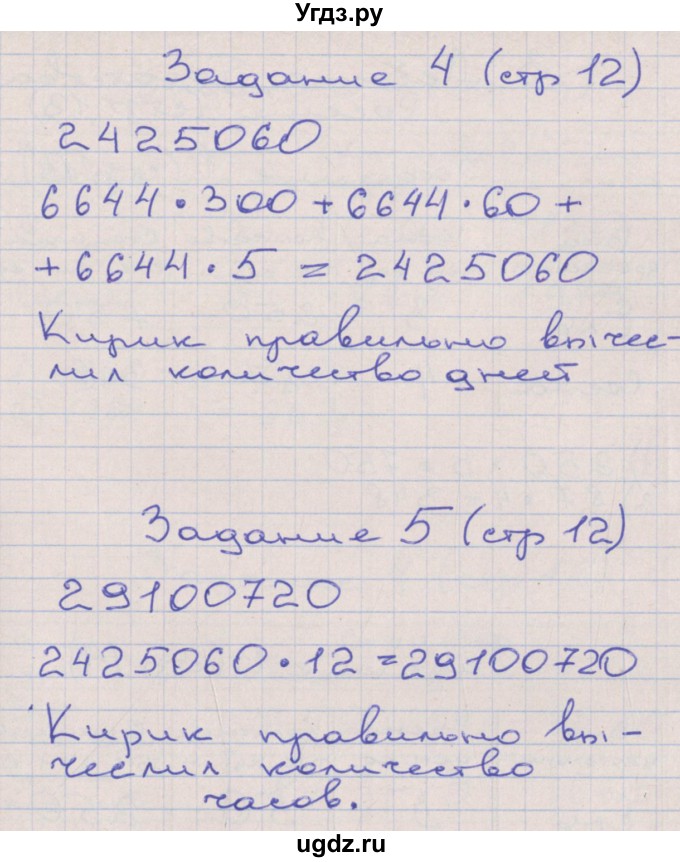 Угдз.ру
Задание 4 (стр 12)
2425060
6644·300+6644·60+
+6644·5 = 2425060
Кирик правильно вычес-
лил количество дней
Задание 5 (стр 12)
29100720
2425060·12=29100720
Кирик правильно вы-
числил количество
часов.
ugdz.ru